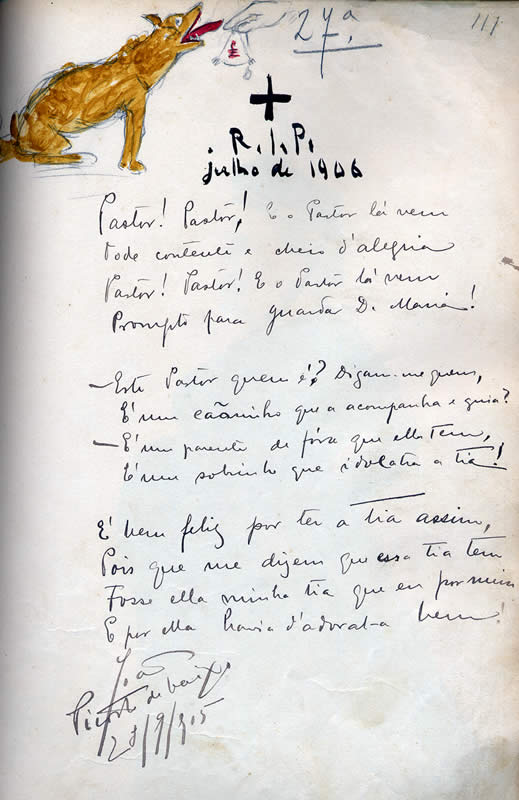 27ª
117
R.I.P.
julho de 1906
Pastor! Pastor! E o Pastor lá vem
Todo contente e cheio d'alegria
Pastor! Pastor! E o Pastor lá vem
Prompto para guardar D. Maria!
—Este Pastor quem é? Digam-me quem,
É um cãosinho que a acompanha e guia?
—É um parente de fóra que ella tem,
É um sobrinho que idolatra a tia!
É bem feliz por ter a tia assim,
Pois que me dizem que essa tia tem
Fosse ella minha tia que eu por mim
E por ella havia d'adoral-a bem!
João
de
28/9/905